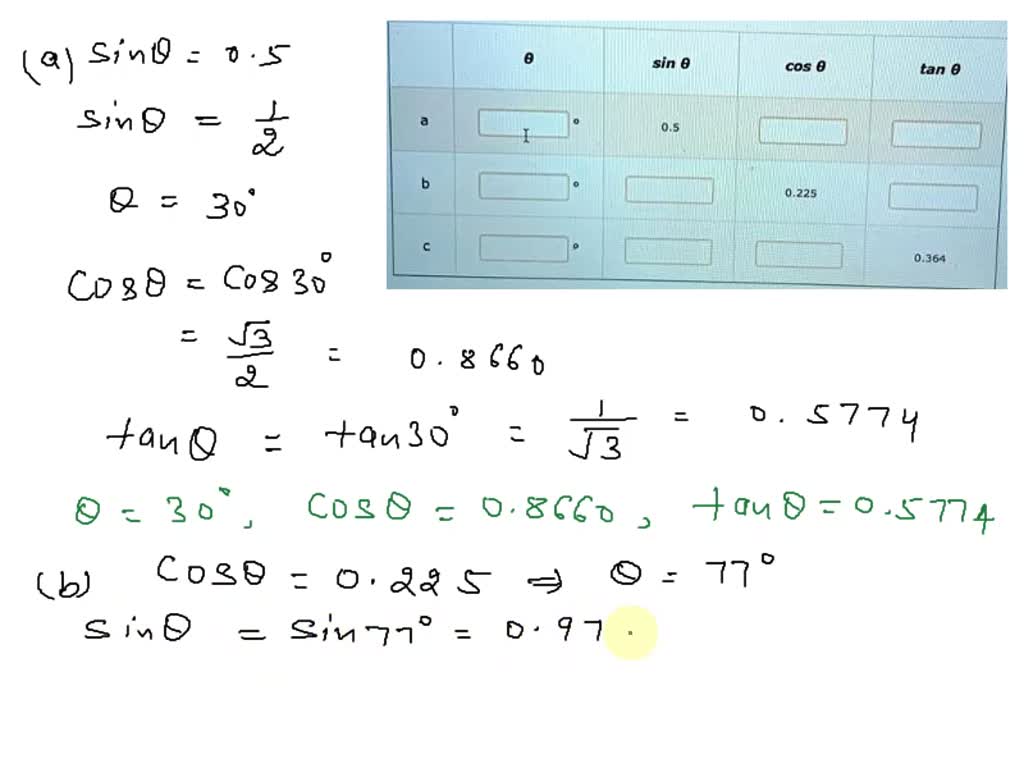 (a) sinθ = 0.5
sinθ = 1/2
θ = 30°
cosθ = cos30°
= √3/2 = 0.8660
tanθ = tan30° = 1/√3 = 0.5774
θ = 30°, cosθ = 0.8660, tanθ = 0.5774
(b) cosθ = 0.225 ⇒ θ = 77°
sinθ = sin77° = 0.97
θ sin θ cos θ tan θ
a ° 0.5
b ° 0.225
c ° 0.364